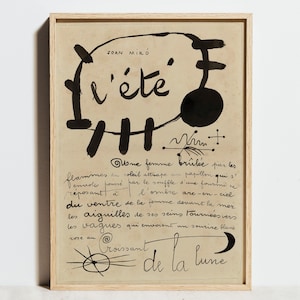 JOAN MIRÓ
l'été
Une femme brûlée par les
flammes du soleil attrape un papillon qui s'
par le souffle d'une fourmi se
reposant à l'ombre arc-en-ciel
du ventre de la femme devant la mer
les aiguilles de ses seins tournées vers
les vagues qui envoient un sourire blanc
au
Croissant
de la lune